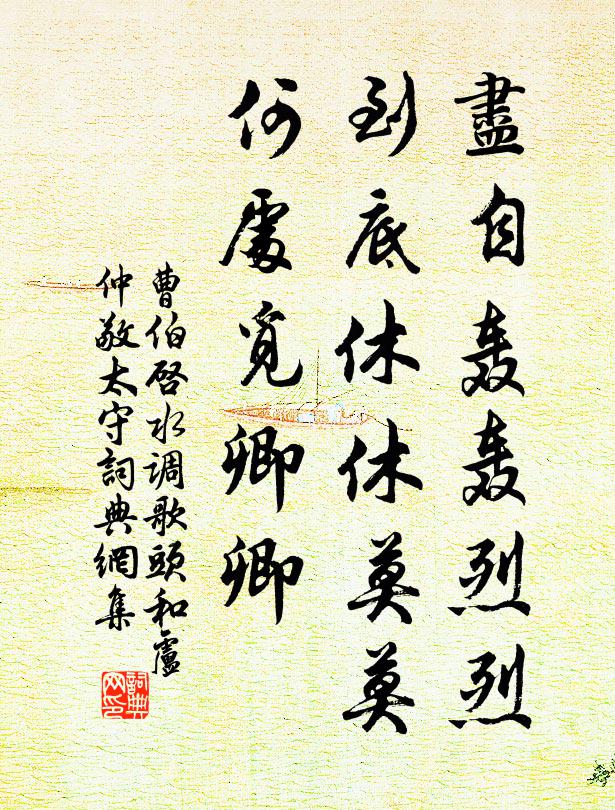 盡自轰轰烈烈
到底休休莫莫
何處覓卿卿
曹伯啓水调歌頭和盧
仲敬太守詞典網集
詞典网印